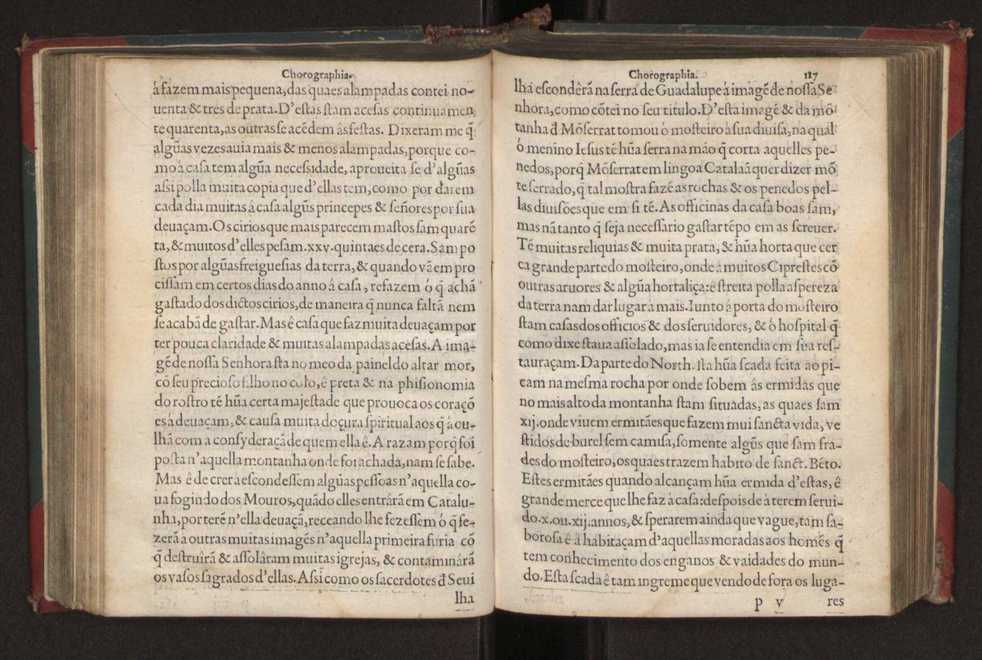 Chorographia.
â fazem mais pequena, das quaes alampadas contei no-
uenta & tres de prata. D'estas stam acesas continuamen
te quarenta, as outras se acēdem às festas. Dixeram me q̃
algũas vezes auia mais & menos alampadas, porque co-
mo à casa tem algũa necessidade, aproueita se d'algũas
assi polla muita copia que d'ellas tem, como por darem
cada dia muitas à casa algũs princepes & señores por sua
deuaçam. Os cirios que mais parecem mastos sam quarẽ
ta, & muitos d'elles pesam .xxv. quintaes de cera. Sam po
stos por algũas freiguesias da terra, & quando vã em pro
cissam em certos dias do anno à casa, refazem ò q̃ achã
gastado dos dictos cirios, de maneira q̃ nunca faltã nem
se acabã de gastar. Mas ê casa que faz muita deuaçam por
ter pouca claridade & muitas alampadas acesas. A ima-
gẽ de nossa Senhora sta no meo da painel do altar mor,
cõ seu precioso filho no colo, ê preta & na phisionomia
do rostro tẽ hũa certa majestade que prouoca os coraçõ
es à deuaçam, & causa muita doçura spiritual aos q̃ à ou-
lhã com a consyderaçã de quem ella ê. A razam porq̃ foi
posta n'aquella montanha onde foi achada, nam se sabe.
Mas ê de crer à escondessem algũas pessoas n'aquella co-
ua fogindo dos Mouros, quãdo elles entrârã em Catalu-
nha, por terẽ n'ella deuaçã, receando lhe fezessẽm ò q̃ fe-
zerã à outras muitas imagẽs n'aquella primeira furia cõ
q̃ destruirã & assolâram muitas igrejas, & contaminârã
os vasos sagrados d'ellas. Assi como os sacerdotes đ Seui
lha
Chorographia. 117
lha escondêrã na serra de Guadalupe á imagẽ de nossa Se
nhora, como cõtei no seu titulo. D'esta imagẽ & da mõ-
tanha đ Mõserrat tomou ò mosteiro à sua diuisa, na qual
ò menino Iesus tẽ hũa serra na mão q̃ corta aquelles pe-
nedos, porq̃ Mõserrat em lingoa Catalaã quer dizer mõ
te serrado, q̃ tal mostra fazẽ as rochas & os penedos pel-
las diuisões que em si tẽ. As officinas da casa boas sam,
mas nã tanto q̃ seja necessario gastar tẽpo em as screuer.
Tẽ muitas reliquias & muita prata, & hũa horta que cer
ca grande parte do mosteiro, onde â muitos Ciprestes cõ
outras aruores & algũa hortaliça: ê streita polla aspereza
da terra nam dar lugar à mais. Iunto á porta do mosteiro
stam casas dos officios & dos seruidores, & ò hospital q̃
como dixe staua assolado, mas ia se entendia em sua res-
tauraçam. Da parte do North. sta hũa scada feita ao pi-
cam na mesma rocha por onde sobem ás ermidas que
no mais alto da montanha stam situadas, as quaes sam
xij. onde viuem ermitães que fazem mui sancta vida, ve
stidos de burel sem camisa, somente algũs que sam fra-
des do mosteiro, os quaes trazem habito de sanct. Bẽto.
Estes ermitães quando alcançam hũa ermida d'estas, ê
grande merce que lhe faz à casa: despois de à terem serui-
do .x. ou .xij. annos, & sperarem ainda que vague, tam sa-
borosa ê à habitaçam d'aquellas moradas aos homẽs q̃
tem conhecimento dos enganos & vaidades do mun-
do. Esta scada ê tam ingreme que vendo de fora os luga-
p v res